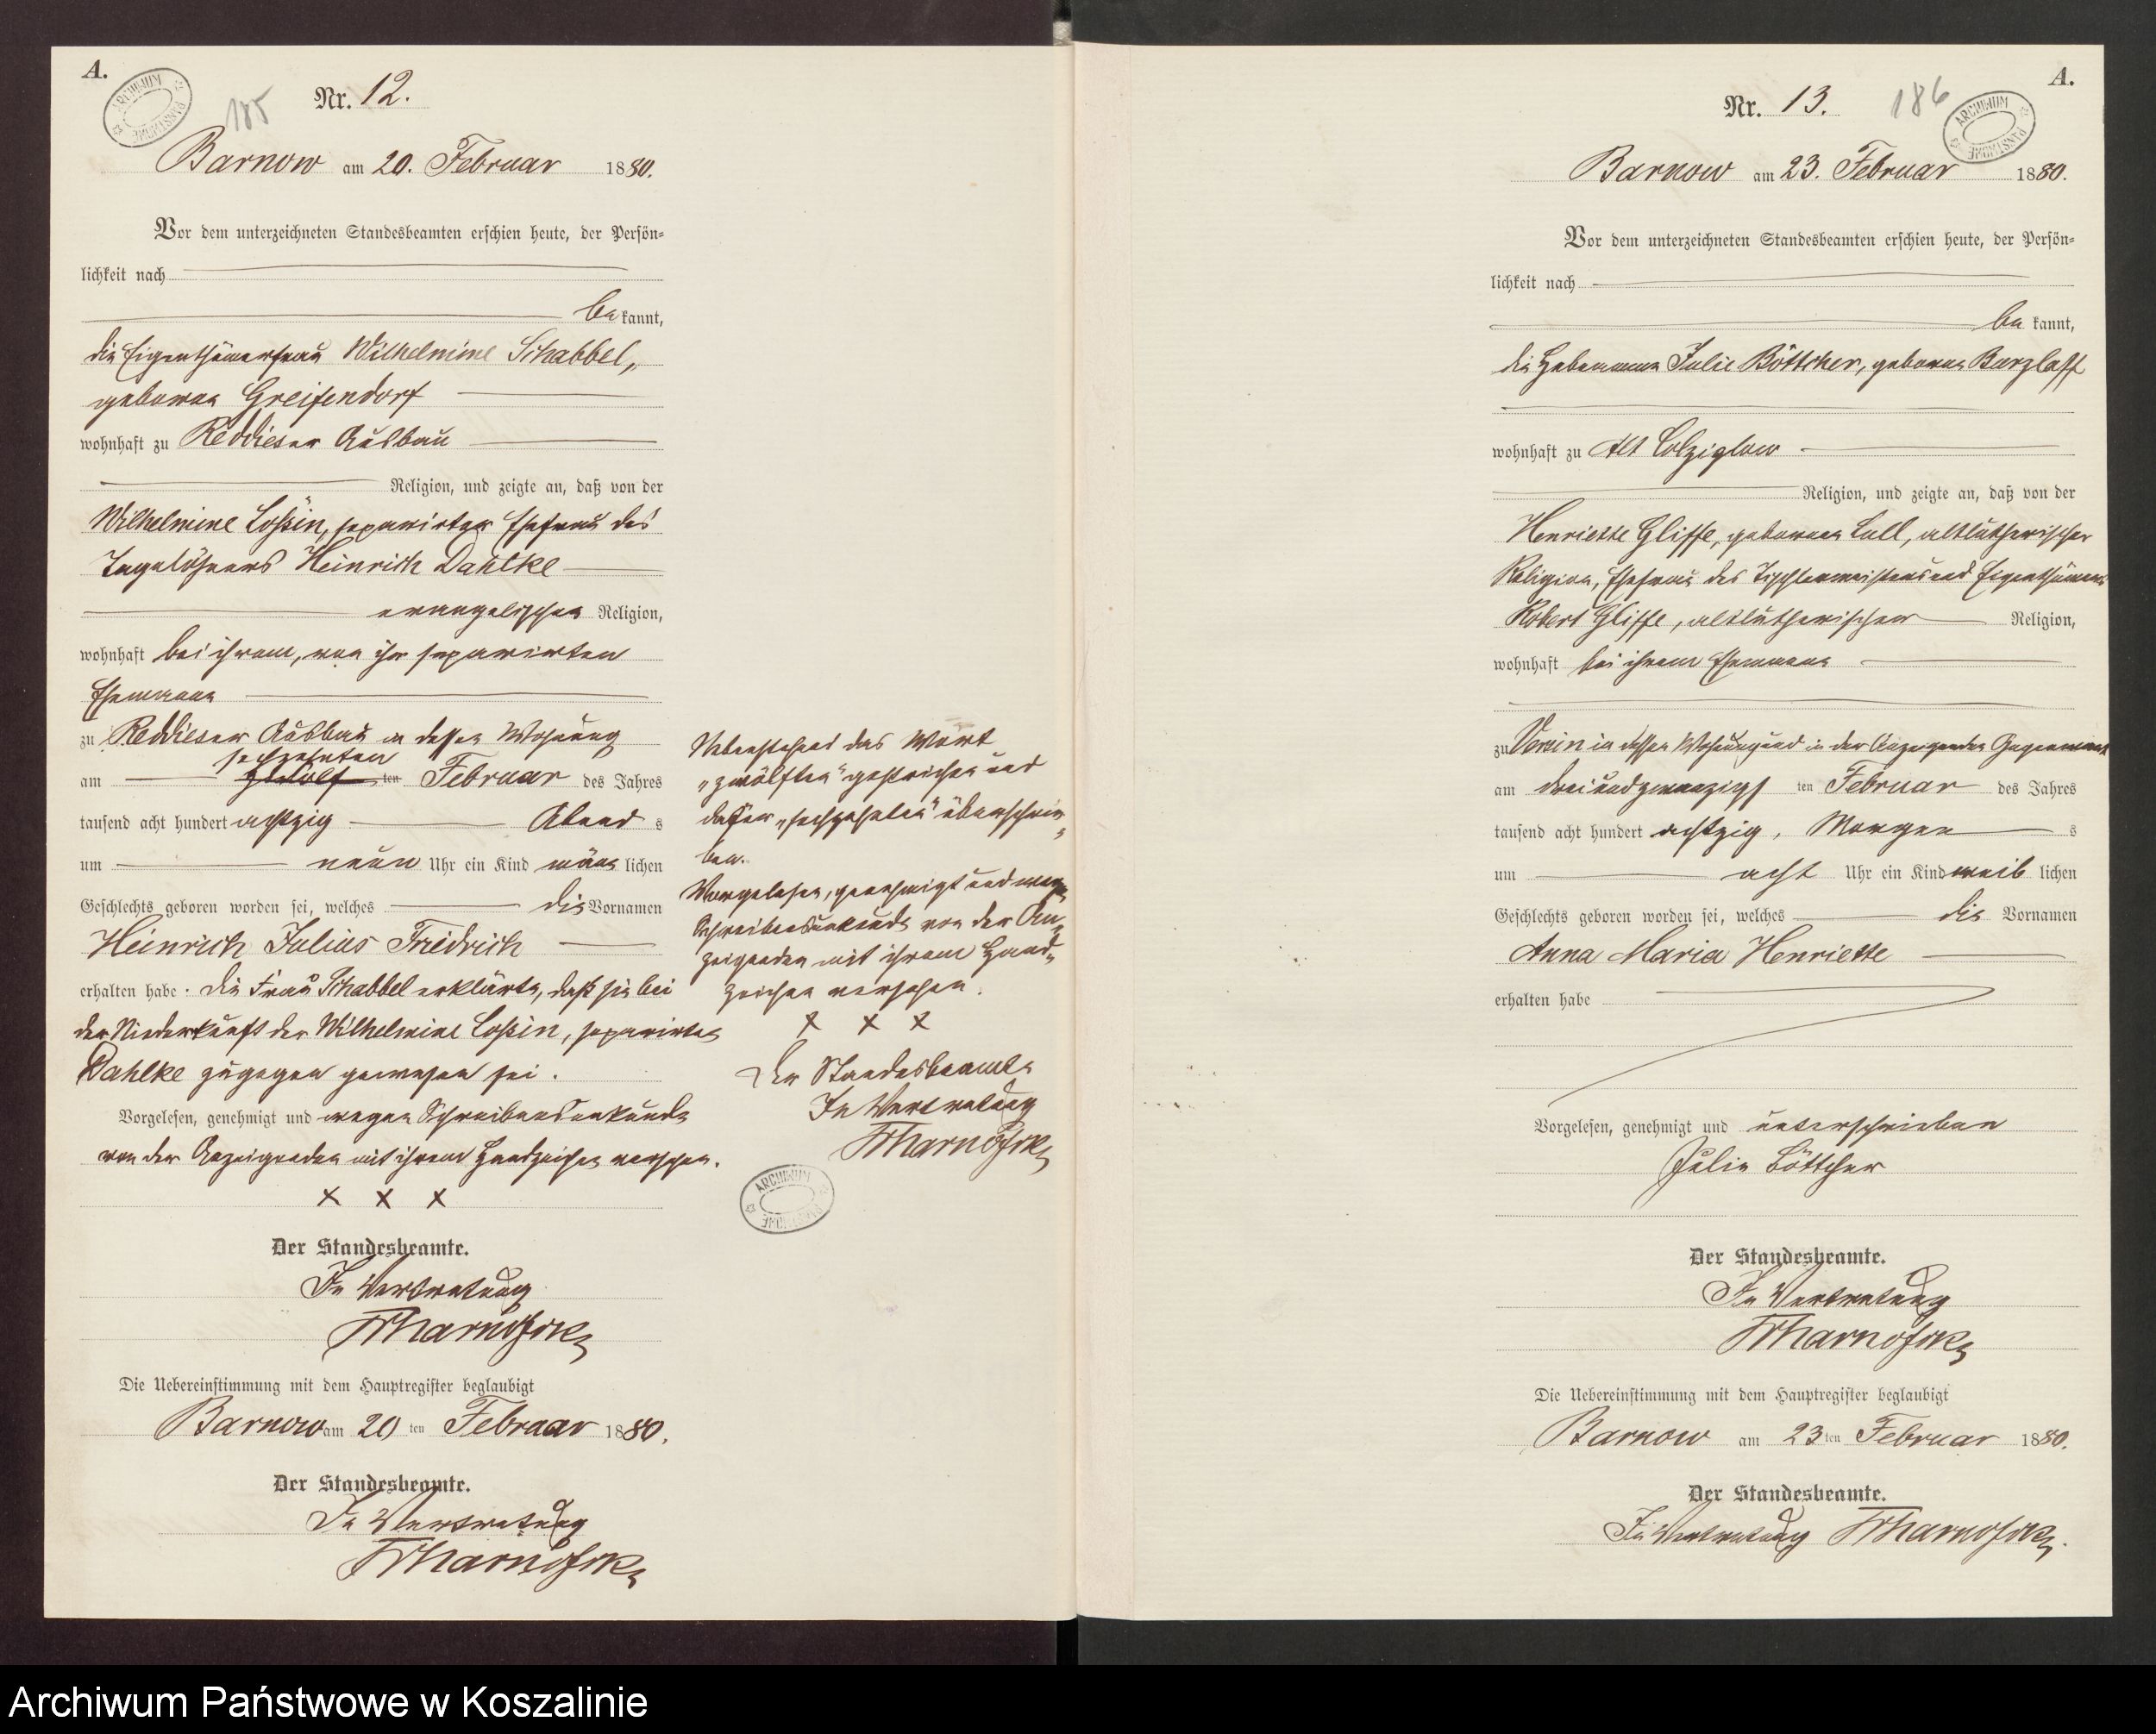 A.
ARCHIWUM PAŃSTWOWE
185
Nr. 12.
Barnow am 20. Februar 1880.
Vor dem unterzeichneten Standesbeamten erschien heute, der Persön-
lichkeit nach
bekannt,
die Eigenthümerfrau Wilhelmine Schabbel,
geborne Greifendorf
wohnhaft zu Reddieser Ausbau
Religion, und zeigte an, daß von der
Wilhelmine Loßin, separirter Ehefrau des
Tagelöhners Heinrich Dahlke
evangelischer Religion,
wohnhaft bei ihrem, von ihr separirten
Ehemann
zu Reddieser Ausbau in dessen Wohnung
sechzehnten
am zwölf ten Februar des Jahres
tausend acht hundert achtzig Abend s
um neun Uhr ein Kind männlichen
Geschlechts geboren worden sei, welches die Vornamen
Heinrich Julius Friedrich
erhalten habe. Die Frau Schabbel erklärte, daß sie bei
der Niederkunft der Wilhelmine Loßin, separirte
Dahlke zugegen gewesen sei.
Vorgelesen, genehmigt und wegen Schreibensunkunde
von der Anzeigenden mit ihrem Handzeichen versehen.
x x x
Der Standesbeamte.
In Vertretung
Die Uebereinstimmung mit dem Hauptregister beglaubigt
Barnow am 20 ten Februar 1880.
Der Standesbeamte.
In Vertretung
Nebenstehend das Wort
„zwölften" gestrichen und
dafür „sechzehnten" überschrie-
ben.
Vorgelesen, genehmigt und wegen
Schreibensunkunde von der An-
zeigenden mit ihrem Hand-
zeichen versehen.
x x x
Der Standesbeamte
In Vertretung
ARCHIWUM PAŃSTWOWE
A.
186
ARCHIWUM PAŃSTWOWE
Nr. 13.
Barnow am 23. Februar 1880.
Vor dem unterzeichneten Standesbeamten erschien heute, der Persön-
lichkeit nach
bekannt,
die Hebamme Julie Böttcher, geborne Barzlaff
wohnhaft zu Alt Colziglow
Religion, und zeigte an, daß von der
Henriette Gliffe, geborenen Lull, altlutherischer
Religion, Ehefrau des Tischlermeisters und Eigenthümers
Robert Gliffe, altlutherischer Religion,
wohnhaft bei ihrem Ehemann
zu Versin in dessen Wohnung und in der Anzeigenden Gegenwart
am dreiundzwanzigs ten Februar des Jahres
tausend acht hundert achtzig, Morgen s
um acht Uhr ein Kind weiblichen
Geschlechts geboren worden sei, welches die Vornamen
Anna Maria Henriette
erhalten habe
Vorgelesen, genehmigt und unterschrieben
Julie Böttcher
Der Standesbeamte.
In Vertretung
Die Uebereinstimmung mit dem Hauptregister beglaubigt
Barnow am 23 ten Februar 1880.
Der Standesbeamte.
In Vertretung
Archiwum Państwowe w Koszalinie